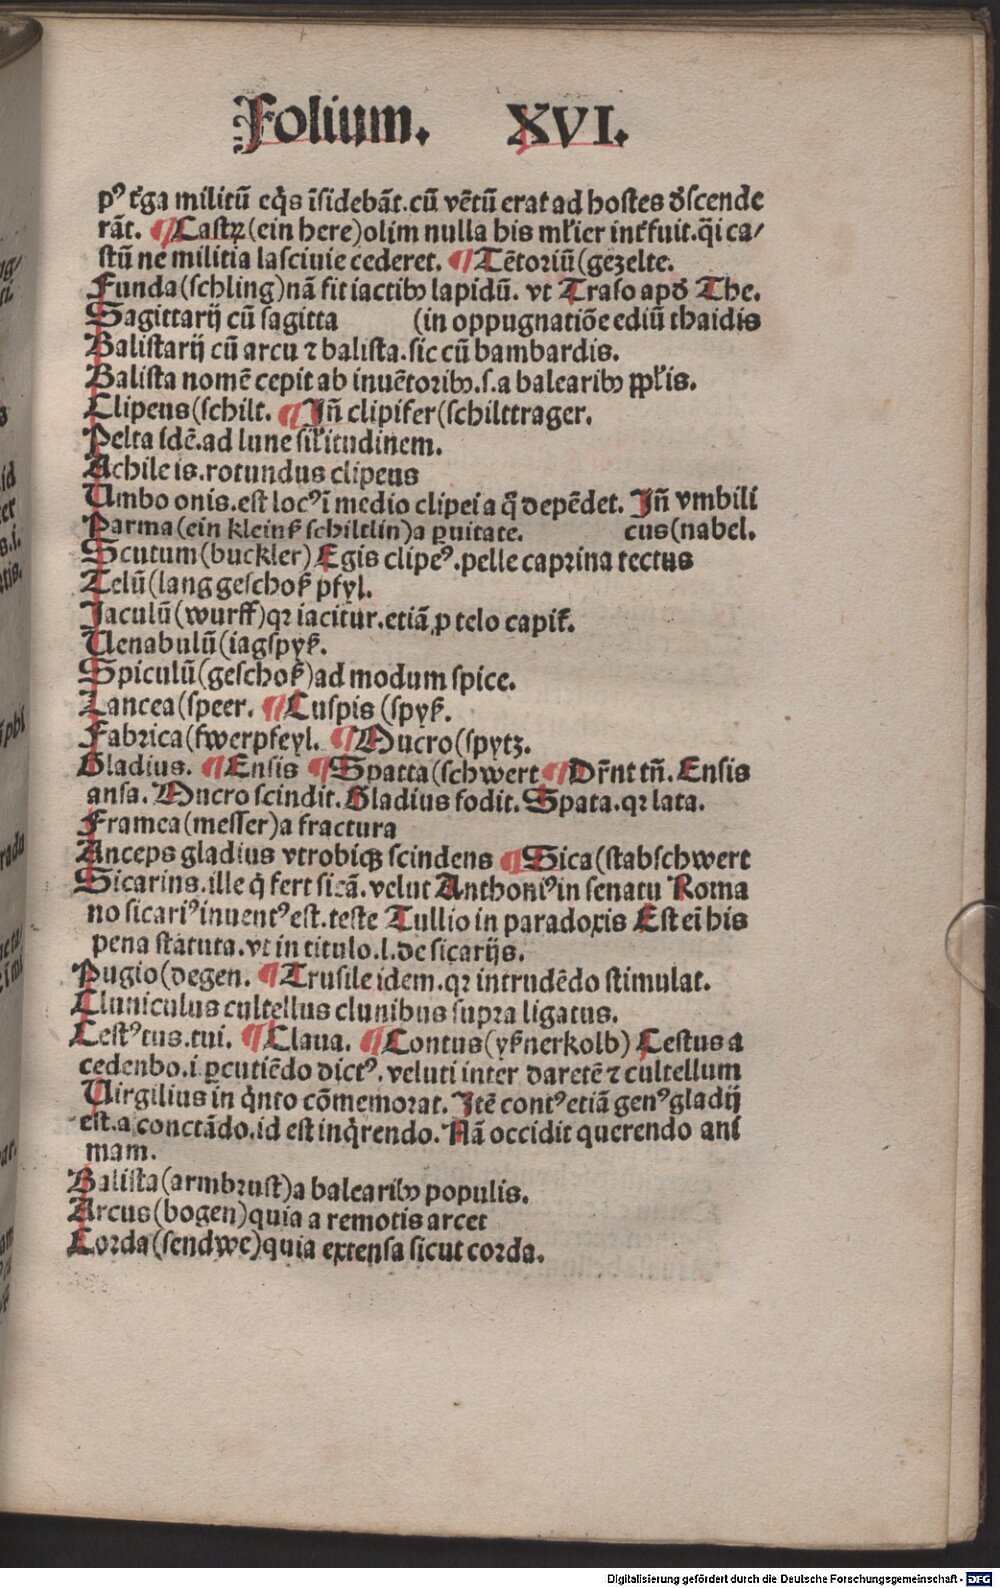 Folium. XVI.
pꝰ t̃ga militũ eq̃s ĩsidebãt. cũ vẽtũ erat ad hostes ꝺ̃scende
rãt. ¶ Castrꝝ (ein here) olim nulla his ml̃ier int̃fuit. q̃i ca/
stũ ne militia lasciuie cederet. ¶ Tẽtoriũ (gezelte.
Funda (schling) nã fit iactibꝰ lapidũ. vt Traso apꝺ̃ The.
Sagittarij cũ sagitta (in oppugnatiõe ediũ thaidis
Balistarij cũ arcu ⁊ balista. sic cũ bambardis.
Balista nomẽ cepit ab inuẽtoribꝰ. s. a balearibꝰ ppl̃is.
Clipeus (schilt. ¶ Iñ clipifer (schilttrager.
Pelta idẽ. ad lune sil̃itudinem.
Achile is. rotundus clipeus
Umbo onis. est locꝰ ĩ medio clipei a q̃ depẽdet. Iñ vmbili
Parma (ein kleinß schiltlin) a ꝑuitate. cus (nabel.
Scutum (buckler) Egis clipeꝰ. pelle caprina tectus
Telũ (lang geschoß pfyl.
Iaculũ (wurff) qꝛ iacitur. etiã ꝓ telo capit̃.
Uenabulũ (iagspyß.
Spiculũ (geschoß) ad modum spice.
Lancea (speer. ¶ Cuspis (spyß.
Fabrica (swerpfeyl. ¶ Mucro (spytz.
Gladius. ¶ Ensis ¶ Spatta (schwert ¶ Dr̃nt tñ. Ensis
ansa. Mucro scindit. Gladius fodit. Spata. qꝛ lata.
Framea (messer) a fractura
Anceps gladius vtrobiqꝫ scindens ¶ Sica (stabschwert
Sicarius. ille q̃ fert sicã. velut Anthoniꝰ in senatu Roma
no sicariꝰ inuentꝰ est. teste Tullio in paradoxis Est eĩ his
pena statuta. vt in titulo. l. de sicarijs.
Pugio (degen. ¶ Trusile idem. qꝛ intrudẽdo stimulat.
Cluniculus cultellus clunibus supra ligatus.
Cestꝰ tus. tui. ¶ Claua. ¶ Contus (yßnerkolb) Cestus a
cedenbo. i ꝑcutiẽdo dictꝰ. veluti inter daretẽ ⁊ cultellum
Uirgilius in q̃nto cõmemorat. Itẽ contꝰ etiã genꝰ gladij
est. a conctãdo. id est inq̃rendo. Nã occidit querendo ani
mam.
Balista (armbrust) a balearibꝰ populis.
Arcus (bogen) quia a remotis arcet
Corda (sendwe) quia extensa sicut corda.
Digitalisierung gefördert durch die Deutsche Forschungsgemeinschaft - DFG